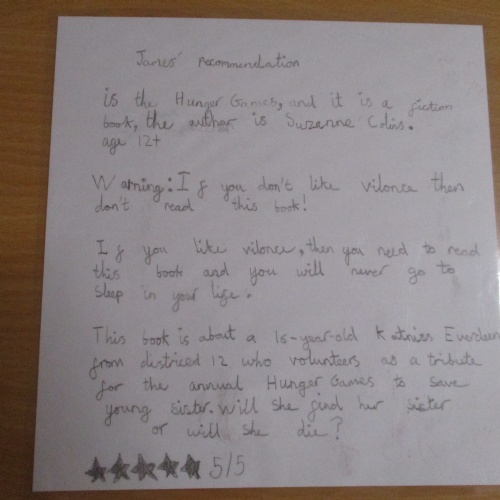 James' recommendation
is the Hunger Games, and it is a fiction
book, the author is Suzanne Colins.
age 12+
Warning: If you don't like vilonce then
don't read this book!
If you like vilonce, then you need to read
this book and you will never go to
sleep in your life.
This book is about a 16-year-old Katniss Everdeen
from districed 12 who volunteers as a tribute
for the annual Hunger Games to save
young sister. Will she find her sister
or will she die?
★★★★★ 5/5